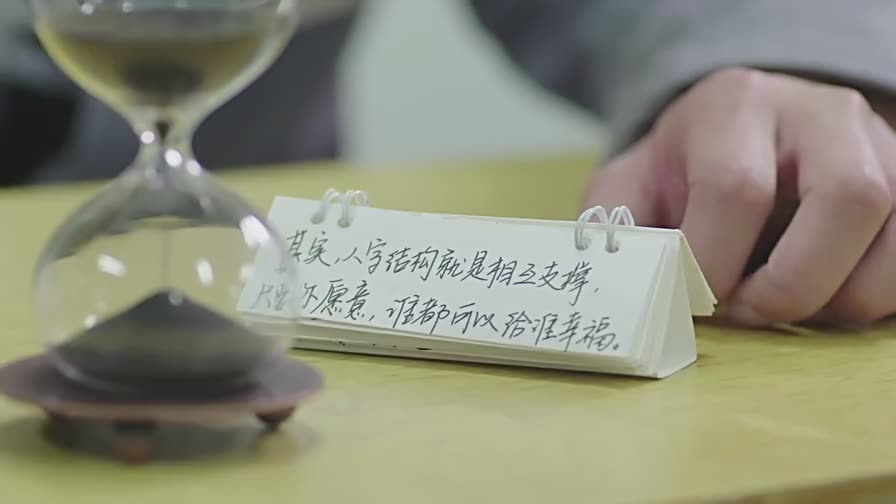 其实,人字结构就是相互支撑,
只要你愿意,谁都可以给谁幸福。